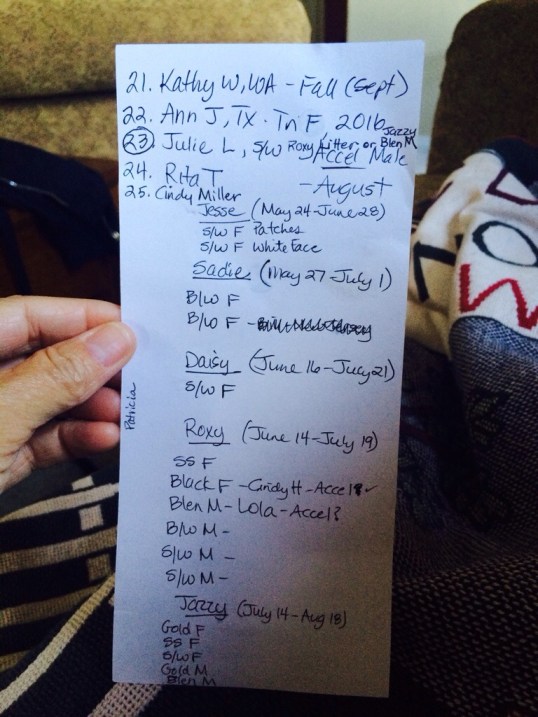 21. Kathy W, WA - Fall (Sept)
22. Ann J, TX. Tri F, 2016
23 Julie L, S/W Roxy Litter or Jazzy Blen M
Accel Male
24. Rita T - August
25. Cindy Miller
Jesse (May 24-June 28)
S/W F Patches
S/W F White Face
Sadie (May 27-July 1)
B/W F
B/W F -
Daisy (June 16-July 21)
S/W F
Patricia
Roxy (June 14-July 19)
SS F
Black F -Cindy H - Accel
Blen M - Lola - Accel?
B/W M -
S/W M -
S/W M -
Jazzy (July 14-Aug 18)
Gold F
SS F
S/W F
Gold M
Blen M
O
W